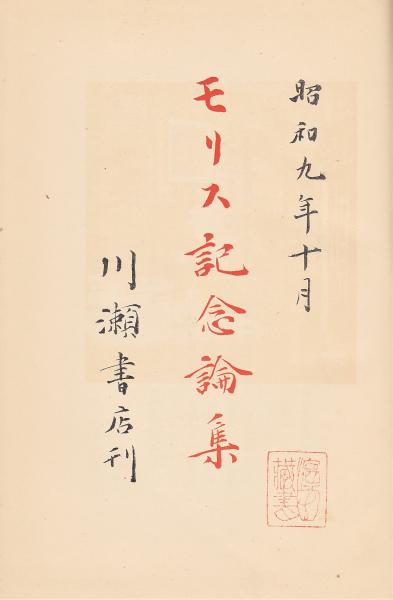 昭和九年十月
モリス記念論集
川瀬書店刊